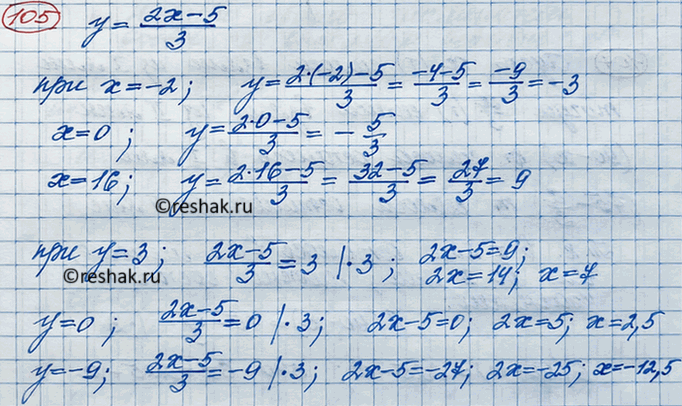 105
y = (2x-5)/3
при x=-2; y = (2·(-2)-5)/3 = (-4-5)/3 = (-9)/3 = -3
x=0; y = (2·0-5)/3 = -5/3
x=16; y = (2·16-5)/3 = (32-5)/3 = 27/3 = 9
©reshak.ru
при y=3; (2x-5)/3 = 3 |·3; 2x-5=9;
2x=14; x=7
©reshak.ru
y=0; (2x-5)/3 = 0 |·3; 2x-5=0; 2x=5; x=2,5
y=-9; (2x-5)/3 = -9 |·3; 2x-5=-27; 2x=-25; x=-12,5